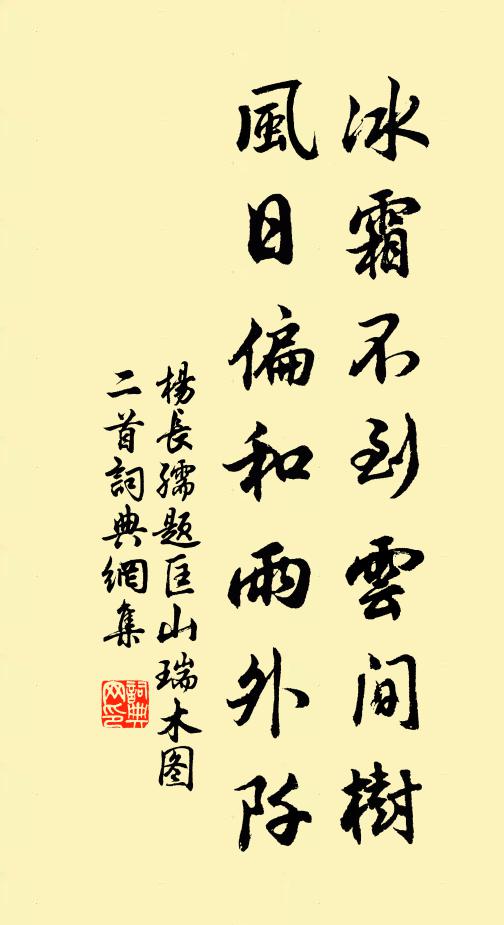 冰霜不到雲間樹
風日偏和雨外阡
楊長孺題匡山瑞木图
二首詞典網集
詞典
网印